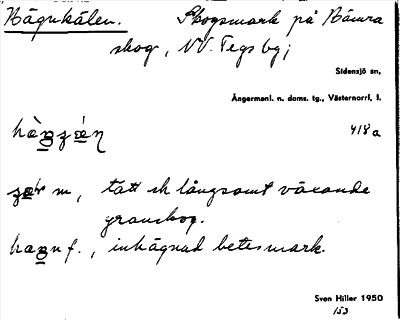 Hägnkälen. Skogsmark på Hämra
skog, NV. Tegsbg;
Sidensjö sn,
Ångermanl. n. doms. tg., Västernorrl. l.
418a
m, tätt ch långsamt växande
granskog.
f., inhägnad betesmark.
Sven Hiller 1950
153